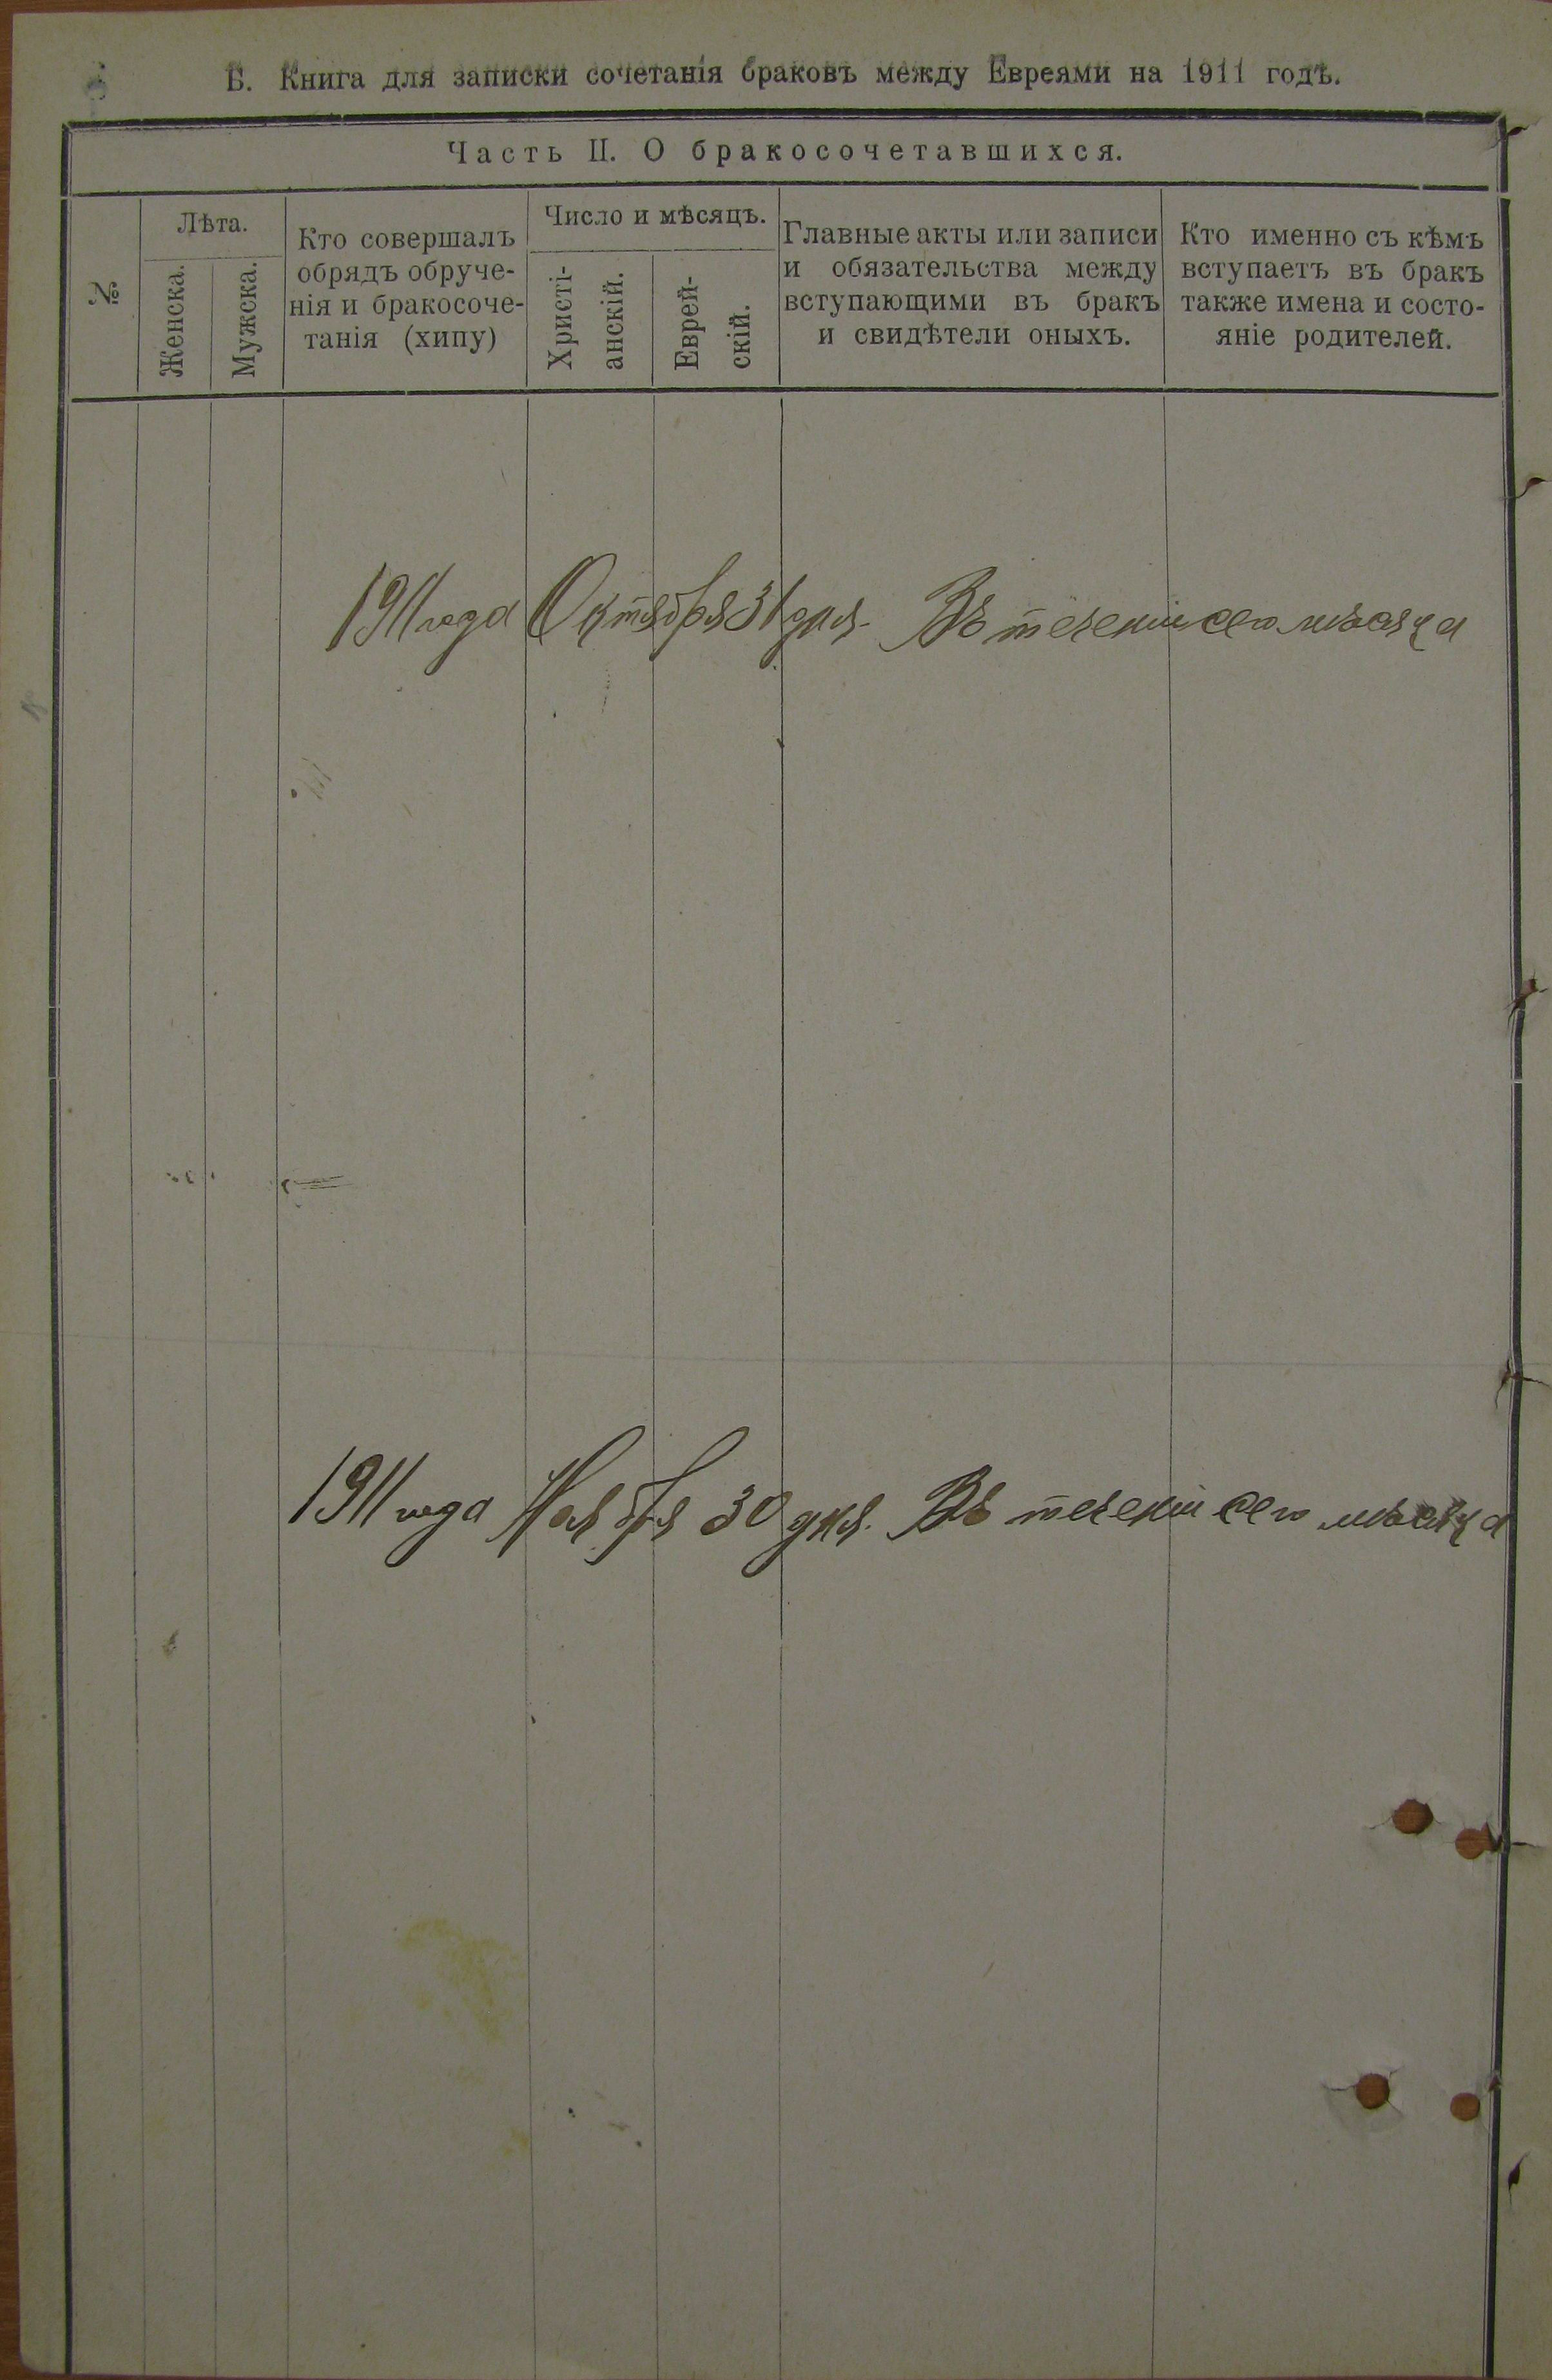 Б. Книга для записки сочетанія браковъ между Евреями на 1911 годъ.
Часть II. О бракосочетавшихся.
№
Лѣта.
Женска.
Мужска.
Кто совершалъ
обрядъ обруче-
нія и бракосоче-
танія (хипу)
Число и мѣсяцъ.
Христі-
анскій.
Еврей-
скій.
Главные акты или записи
и обязательства между
вступающими въ бракъ
и свидѣтели оныхъ.
Кто именно съ кѣмъ
вступаетъ въ бракъ
также имена и состо-
яніе родителей.
1911 года Октября 31 дня. Въ теченіи сего мѣсяца
1911 года Ноября 30 дня. Въ теченіи сего мѣсяца